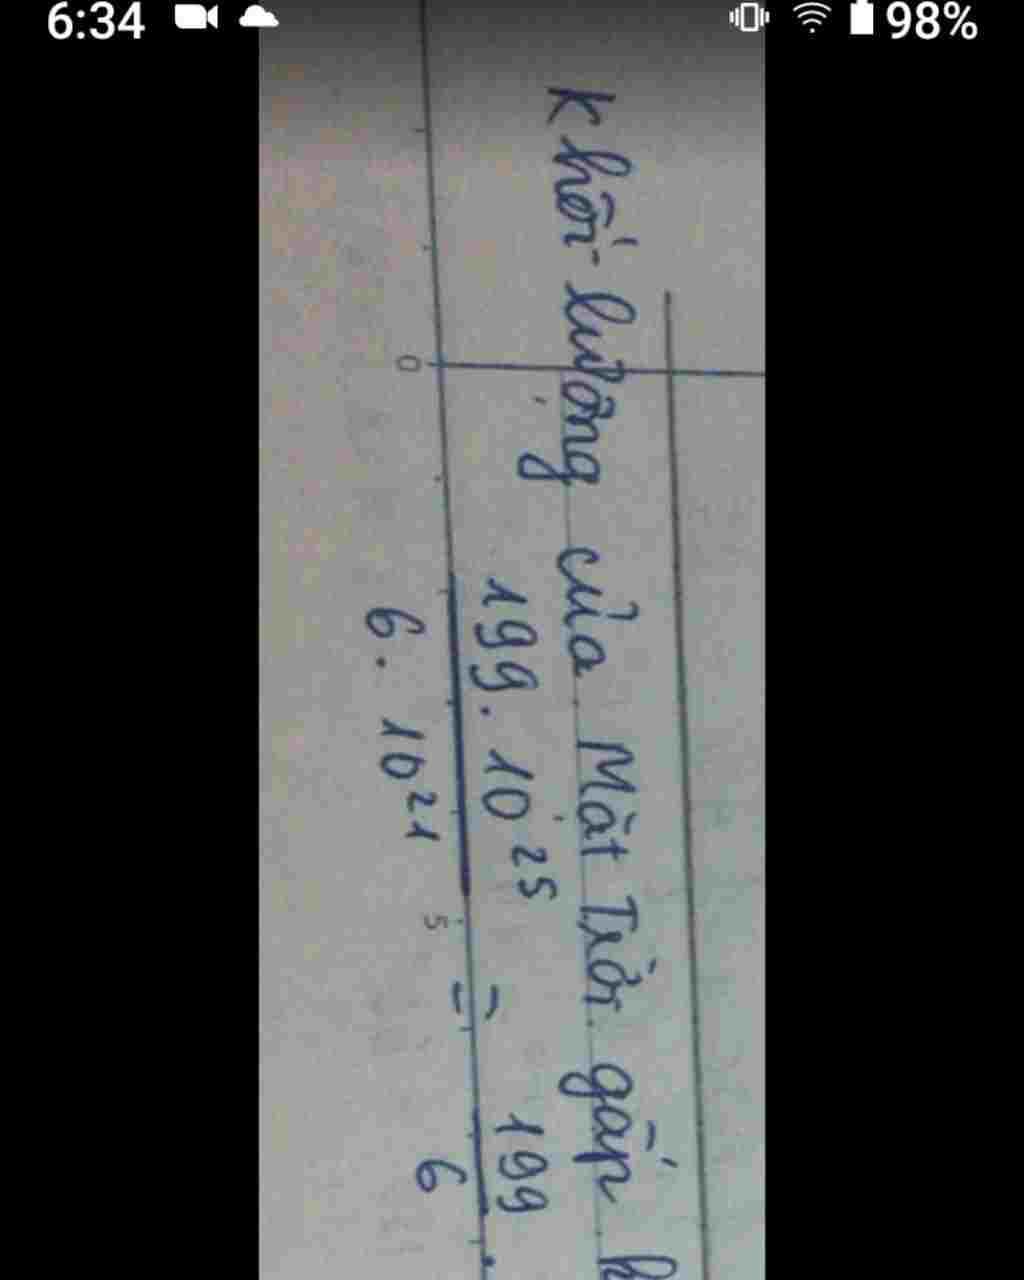 6:34 98%
Khối lượng của Mặt Trời gấp
199.10²⁵ = 199
6.10²¹ 6
0 5